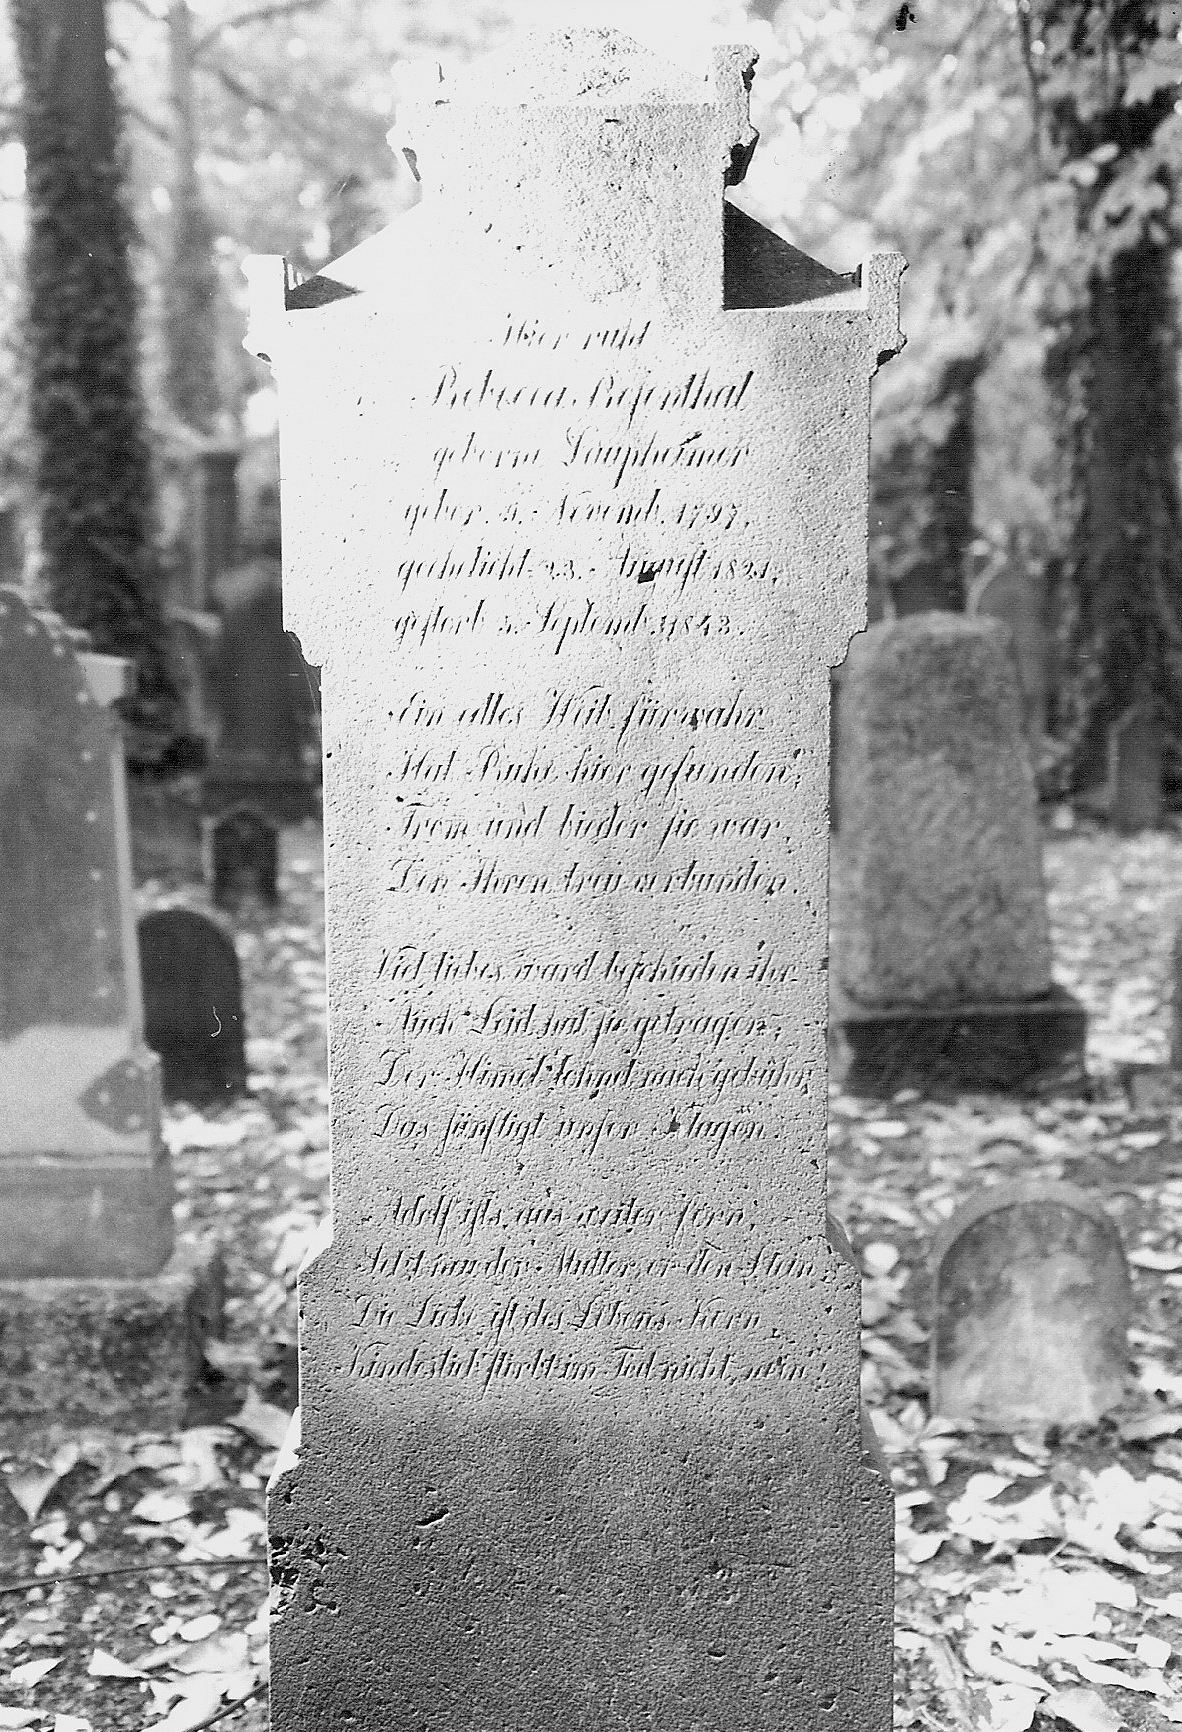 Hier ruht
Rebecca Rosenthal
geborne Laupheimer
gebor. 5. Novemb. 1797,
geehelicht 23. August 1821,
gestorb 5. Septemb. 1843.
Ein edles Weib fürwahr
Hat Ruhe hier gefunden;
From und bieder sie war,
Den Ihren treu verbunden.
Viel liebes ward beschieden ihr
Auch Leid hat sie getragen;
Der Himel lohnet nach gebühr,
Das unser Klagen.
ists, uns weiter fern,
der Mutter, der den Stein,
Die Liebe ist des Lebens Kern
Kindeslieb stirbt im Tod nicht, nein!